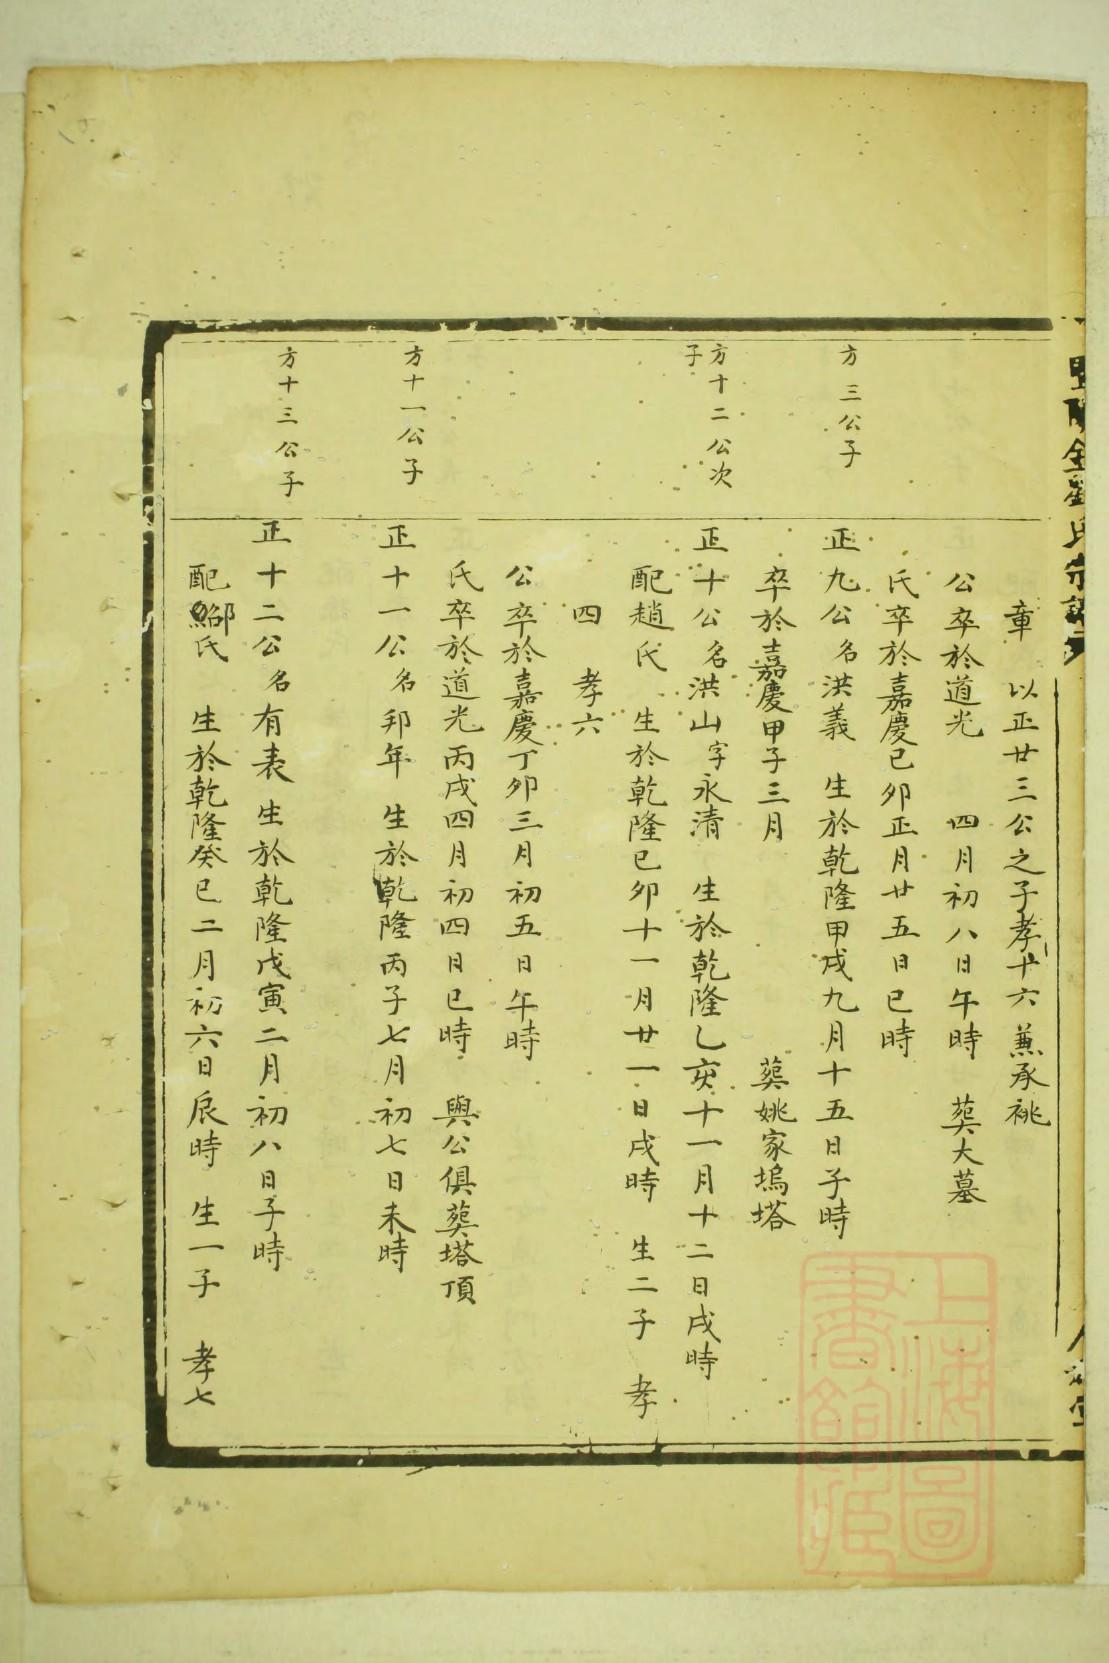 章　以正廿三公之子孝十六兼承祧
公卒於道光　四月初八日午時　葬大墓
氏卒於嘉慶己卯正月廿五日巳時
方三公子
正九公名洪義　生於乾隆甲戌九月十五日子時
卒於嘉慶甲子三月　葬姚家塢塔
方十二公次子
正十公名洪山字永清　生於乾隆乙亥十一月十二日戌時
配趙氏　生於乾隆己卯十一月廿一日戌時　生二子　孝
四　孝六
公卒於嘉慶丁卯三月初五日午時
氏卒於道光丙戌四月初四日巳時　與公俱葬塔頂
方十一公子
正十一公名邦年　生於乾隆丙子七月初七日未時
方十三公子
正十二公名有表　生於乾隆戊寅二月初八日子時
配氏　生於乾隆癸巳二月初六日辰時　生一子　孝七
上海圖
書館藏